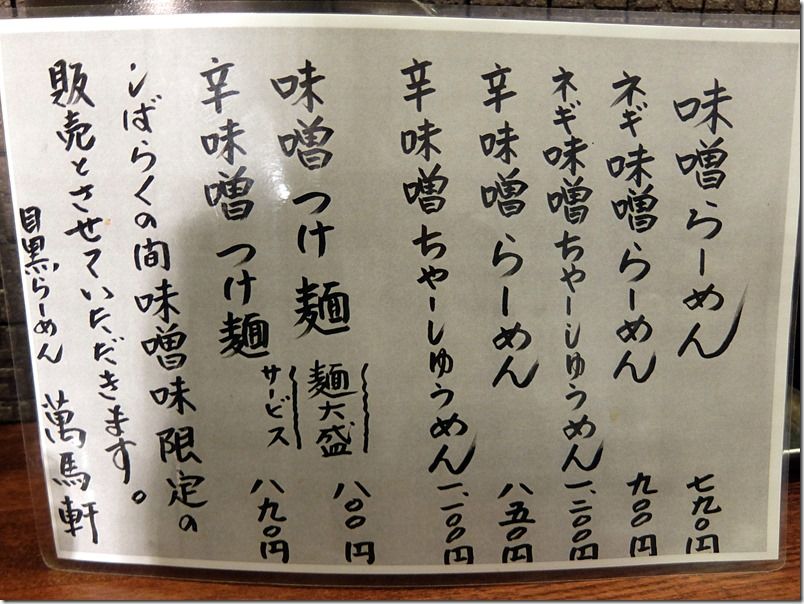 味噌らーめん 七九〇円
ネギ味噌らーめん 九〇〇円
ネギ味噌ちゃーしゅうめん 一、二〇〇円
辛味噌らーめん 八五〇円
辛味噌ちゃーしゅうめん 一、一〇〇円
味噌つけ麺 八〇〇円
麺大盛
サービス
辛味噌つけ麺 八九〇円
しばらくの間味噌味限定の
販売とさせていただきます。
目黒らーめん 萬馬軒